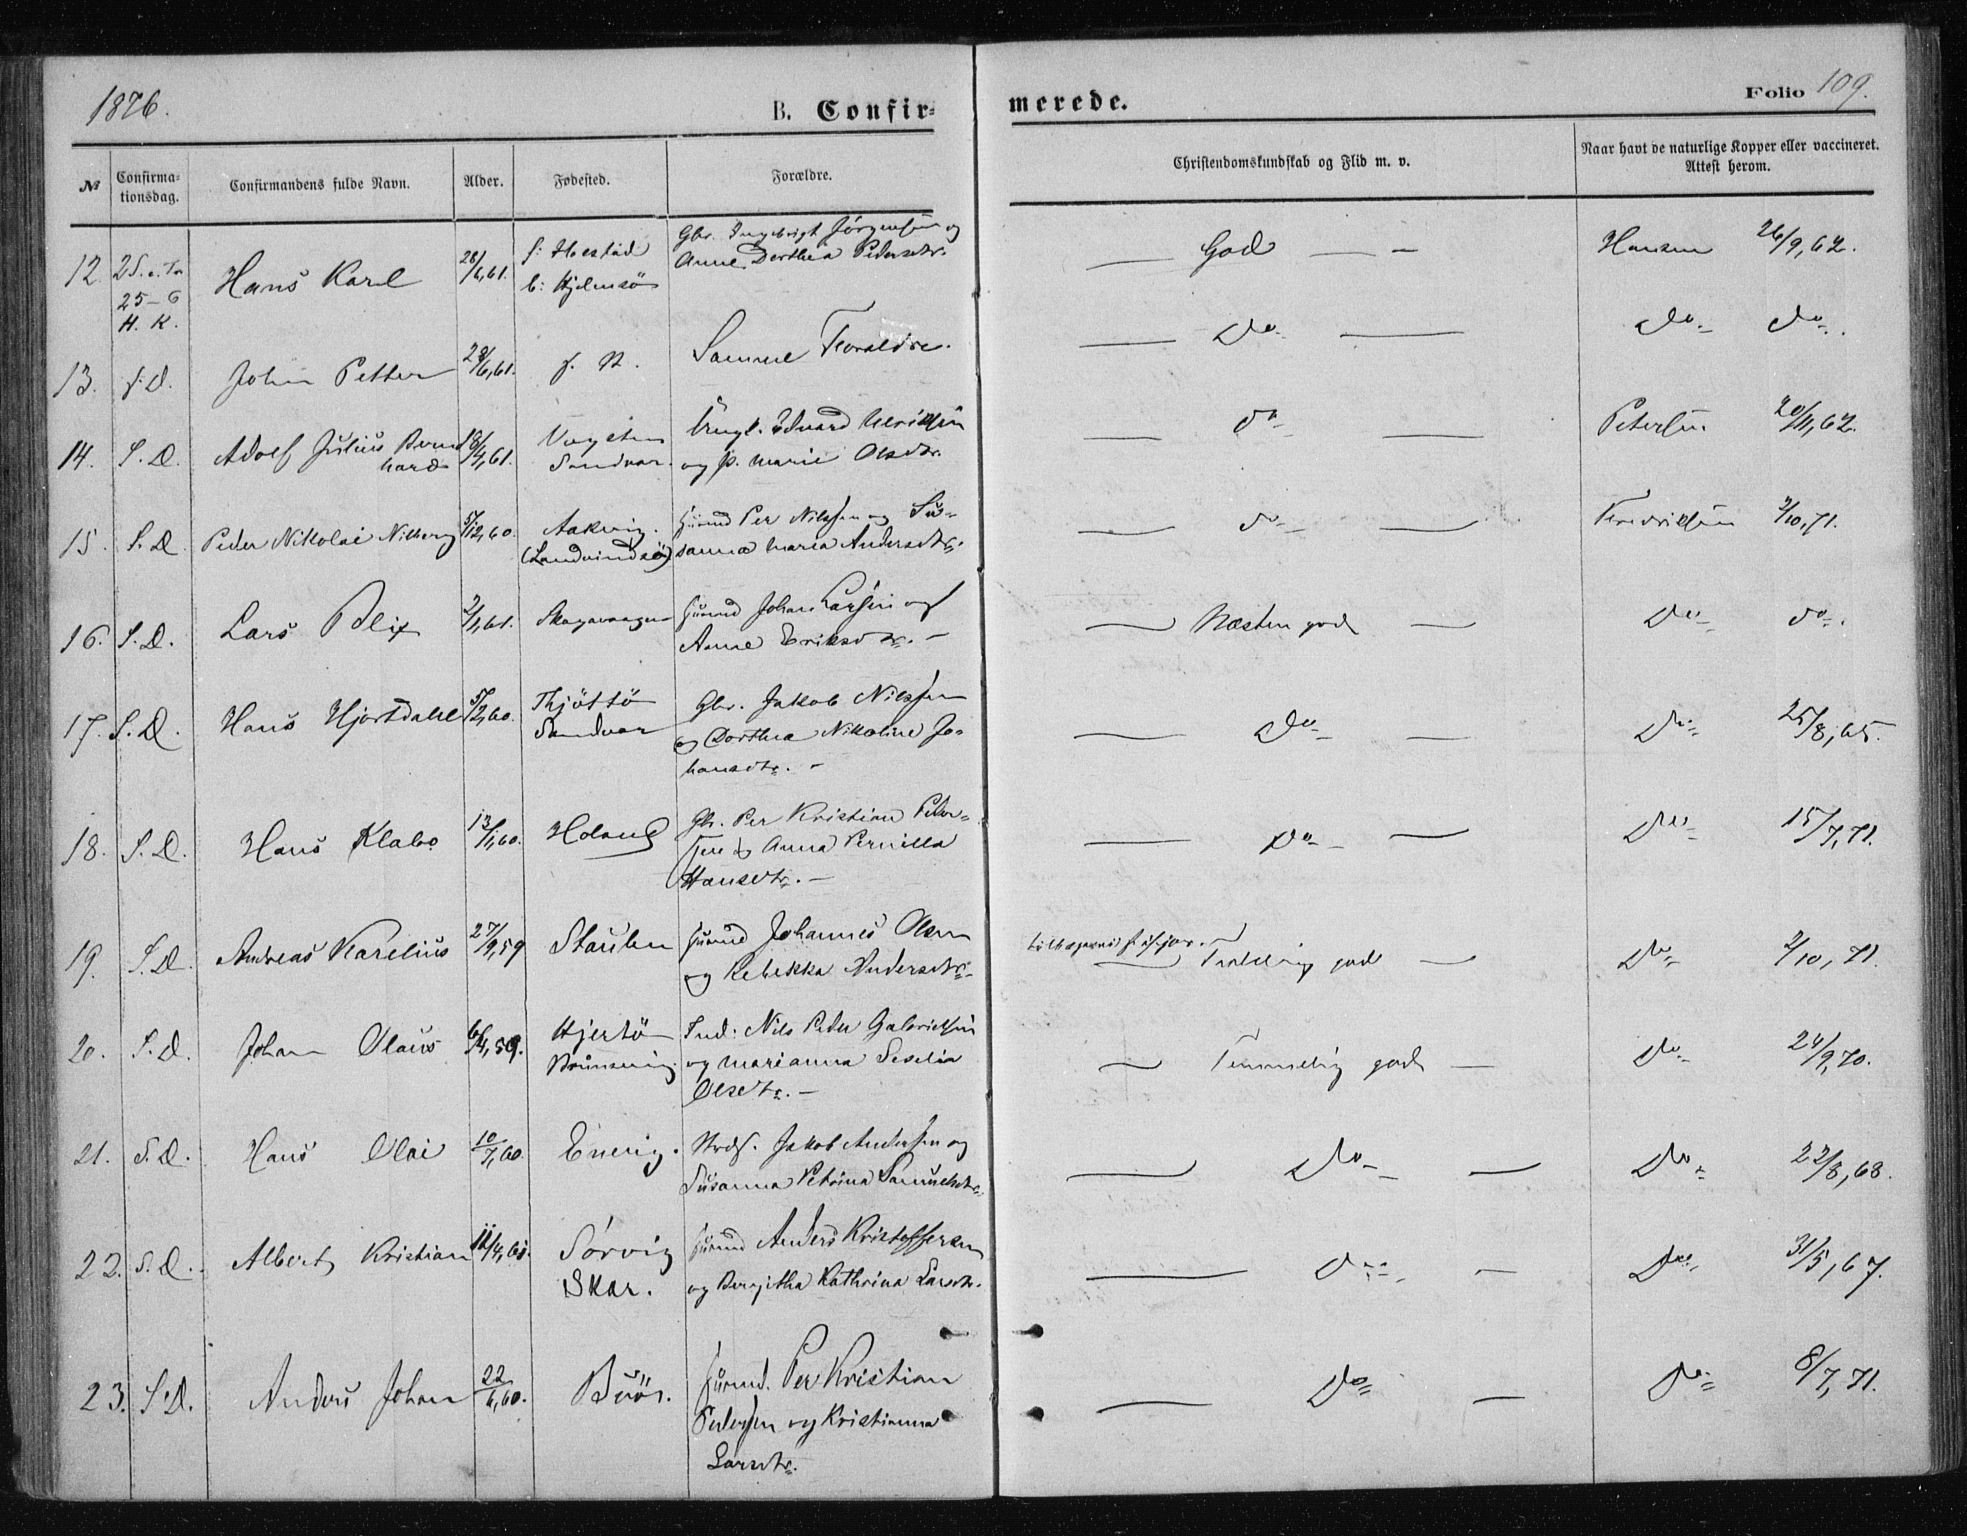 1876.
B. Confirmerede.
Folio 109.
№ Confirmationsdag. Confirmandens fulde Navn. Alder. Fødested. Forældre. Christendomskundskab og Flid m. v. Naar havt de naturlige Kopper eller vaccineret. Attest herom.
12. 2 S. e. Tr. 25-6 H. K. Hans Karl 28/6,61. f: Hestad b: Hjelmsø Gbr. Ingebrigt Jörgensen og
Anne Dorthea Pedersdtr. — God — Hansen 26/9,62.
13. S.D. Johan Petter 28/6,61. f. N. Samme Foreldre. — Do — Do Do.
14. S.D. Adolf Julius Bernhard 18/4,61. Sandvær. Ungk. Edvard Ulriksen
og p. Marie Olsdtr. — Do — Petersen 20/11,62.
15. S.D. Peder Nikolai Nilberg 5/12,60. Aakvig. Huusmd Per Nilssen og Susanna Maria Andersdtr. — Do — Fredriksen 2/10,71.
16. S.D. Lars Blix 2/1,61. Huusmd Johan Larsen og
Anne Eriksdtr. — Næsten god — Do Do.
17. S.D. Hans Hjortdahl 5/2,60. Thjöttö Sandvær Gbr. Jakob Nilssen
og Dorthea Nikoline Johansdtr. — Do — Do 25/8,65.
18. S.D. Hans Klabo 13/1,60. Holand Gbr. Per Kristian Pedersen og Anna Pernilla
Hansdtr. — Do — Do 15/7,71.
19. S.D. Andreas Karelius 27/9,59 Staulen Huusmd Johannes Olsen
og Rebekka Andersdtr. — god — Do 2/10,71.
20. S.D. Johan Olaus 6/4,59. Hjertö Ind: Nils Peder Gabrielsen
og Marianna Seselia
Olsdtr. — Temmelig god — Do 24/9,70.
21. S.D. Hans Olai 10/7,60. Envig. Jakob Andersen og
Susanna Petrina Samuelsdtr. — Do — Do 22/8,68.
22. S.D. Albert Kristian 11/4,61. Sörvig Skar. Huusmd Anders Kristoffersen
og Bergitha Kathrina Larsdtr. — Do — Do 31/5,67.
23. S.D. Anders Johan 22/6,60. Buös. Huusmd. Per Kristian
Pedersen og Kristianna
Larsdtr. — Do — Do 8/7,71.